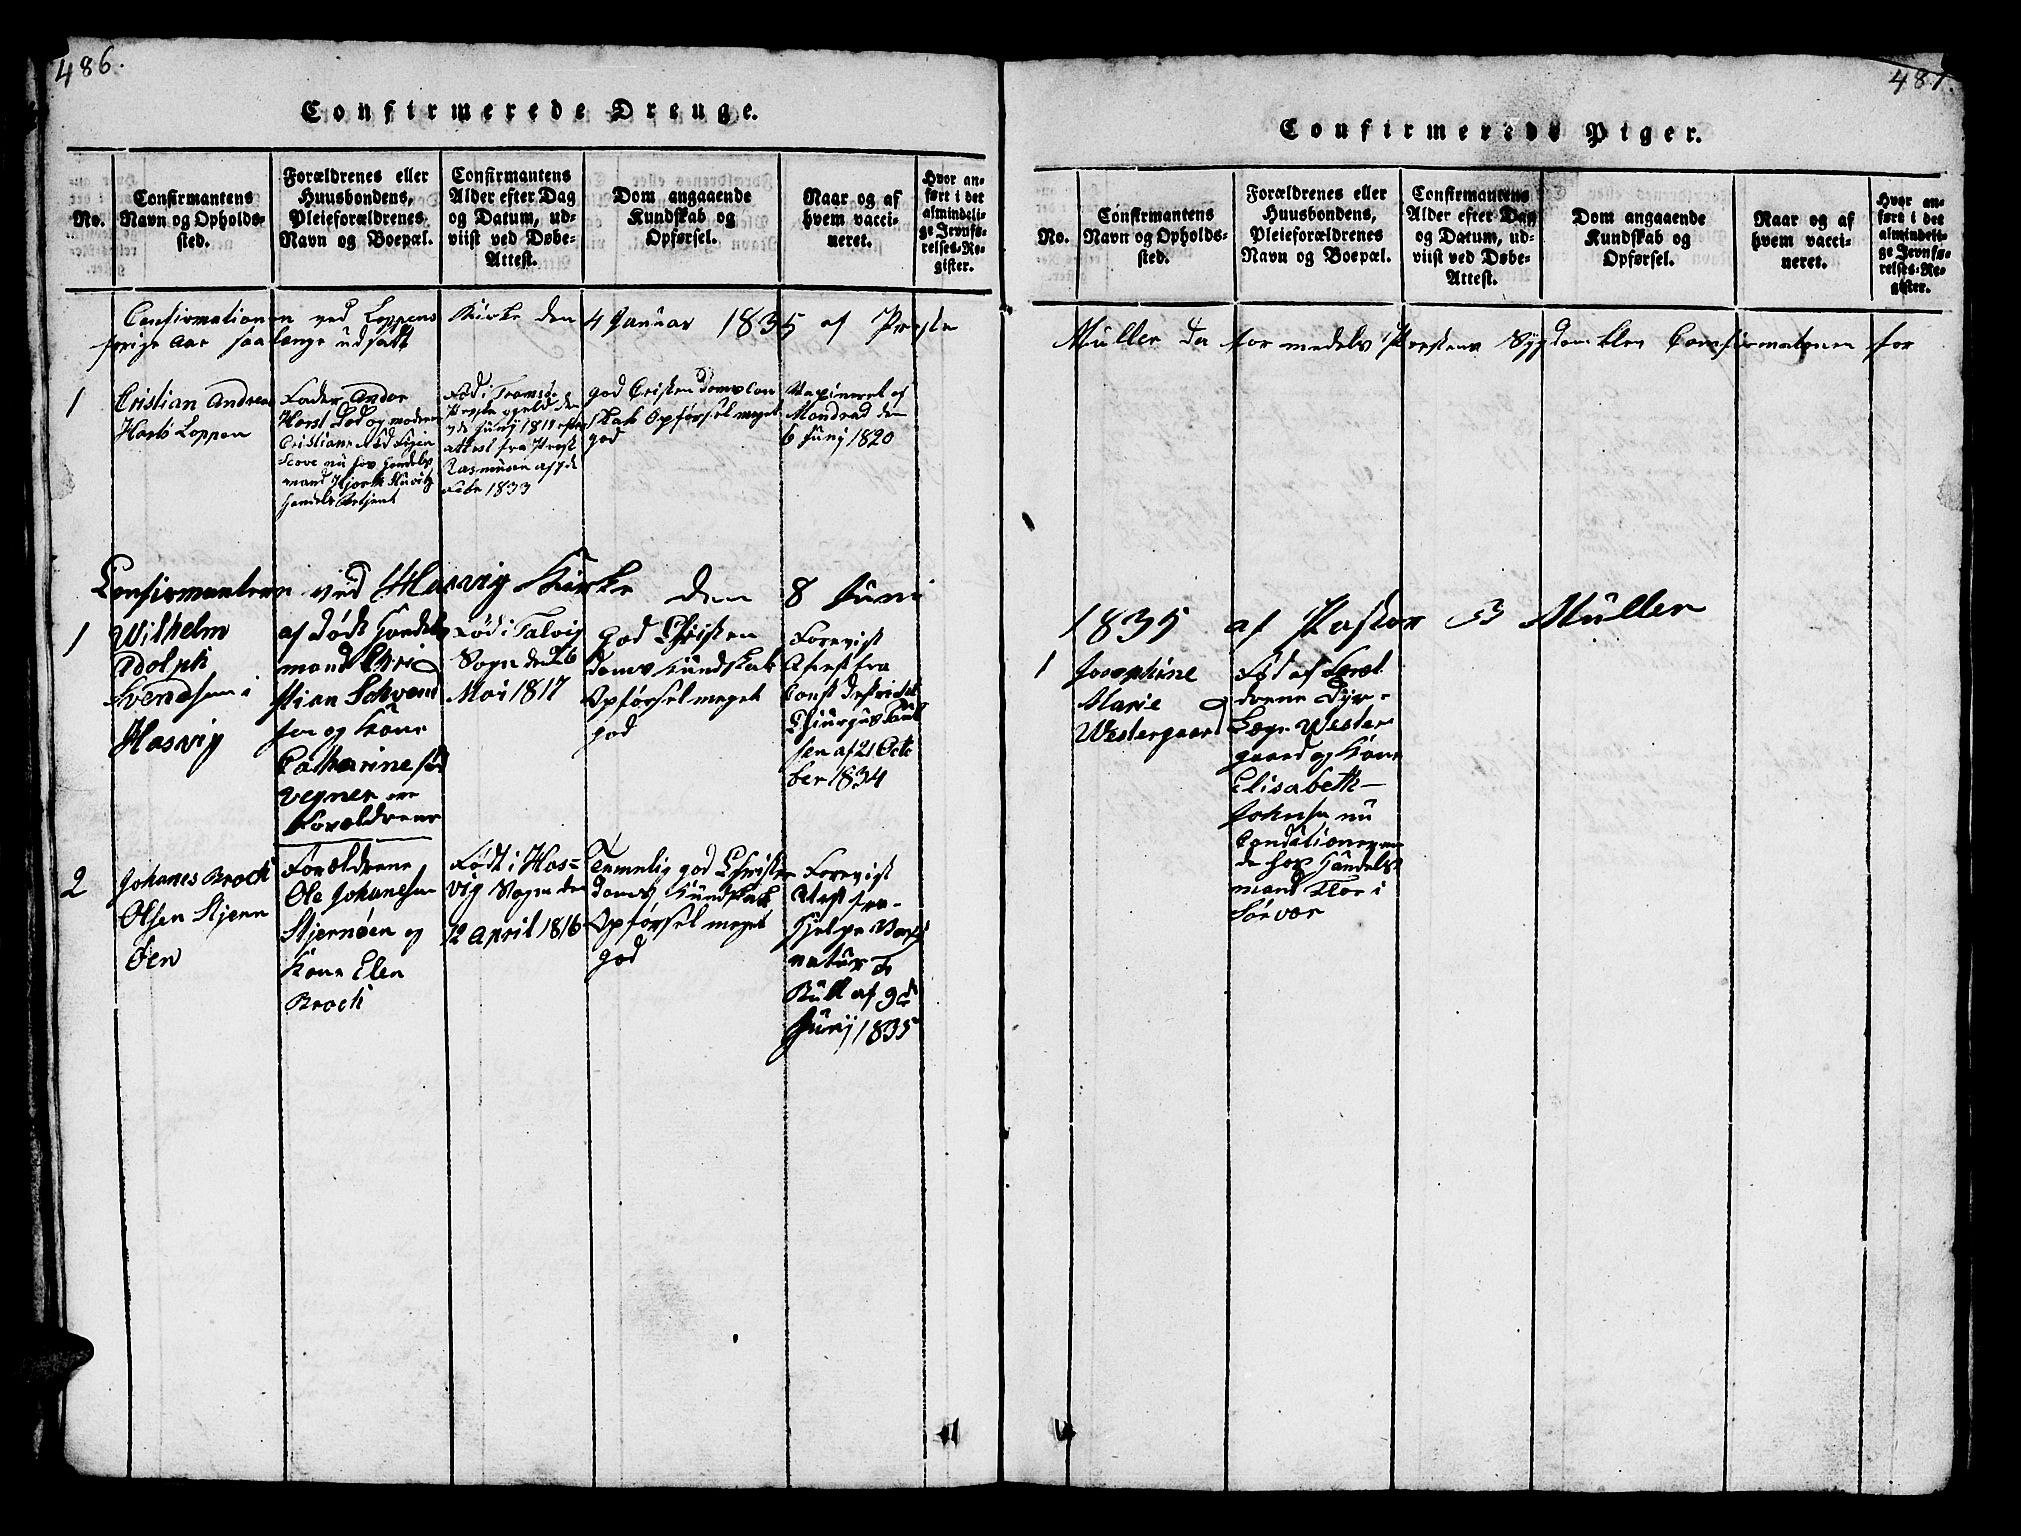 486.
Confirmerede Drenge.
No.
Confirmantens
Navn og Opholds-
sted.
Forældrenes eller
Huusbondens,
Pleieforældrenes
Navn og Boepæl.
Confirmantens
Alder efter Dag
og Datum, ud-
viist ved Døbe-
Attest.
Dom angaaende
Kundskab og
Opførsel.
Naar og af
hvem vacci-
neret.
Hvor an-
ført i det
almindeli-
ge Jevnfø-
relses-Re-
gister.
Confirmationen ved Loppens Kirke den 4 Januar 1835 af Præste
forige Aar saalænge udsatt
1
Cristian Andreas
Loppen
Fader
Horst Død og moderen
Cristiane
nu hos Handels
mand Hjorth
Handels Betjent
Fød i Tromsø
den
Junij 1818
attest fra Præst
Rasmusen af 7de
1833
god Cristendoms Kun
skab Opførsel meget
god
Vaxineret af
den
6 Junij 1820
Confirmanterne ved Hasvig Kirke den 8 Juni
1
Wilhelm
Adolph
Svendsen i
Hasvig
af Døde Handels
mand Chri
stian Schvend
sen og Kone
Catharine fød
Vegner ere
Forældrene
Fød i Talvig
Sogn den 26
Mai 1817
god Christen
doms Kundskab
Opførsel meget
god
Forevist
Atest fra
Const Destricts
Chiurgus
sen af 21 Octo
ber 1834
2
Johanes Brock
Olsen Stjern
Øen
Forældrene
Ole Johanesen
Stjernøen og
Kone Elen
Brock
Født i Has=
vig Sogn den
12 April 1816
Temmelig god Christen
doms Kundskab
Opførsel meget
god
Forevist
Atest fra
Hjelpe Vaxi
natør F
Bull af 9de
Junij 1835
487.
Confirmerede Piger.
No.
Confirmantens
Navn og Opholds-
sted.
Forældrenes eller
Huusbondens,
Pleieforældrenes
Navn og Boepæl.
Confirmantens
Alder efter Dag
og Datum, ud-
viist ved Døbe-
Attest.
Dom angaaende
Kundskab og
Opførsel.
Naar og af
hvem vacci-
neret.
Hvor an-
ført i det
almindeli-
ge Jevnfø-
relses-Re-
gister.
Müller da formedels Præstens Sygdom blev Comfirmationen for
1835 af Pastor B Müller
1
Josephine
Marie
Westergaard
Fød af Foræl
drene Dyr-
Læge Wester
gaard og Kone
Elisabeth
Johnsen nu
Conditioneren
de hos Handels
mand Flor i
Sørvær